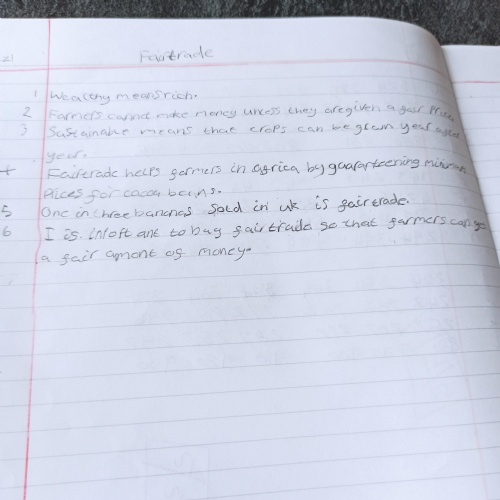 Fairtrade
1 Wealthy means rich.
2 Farmers cannot make money unless they are given a fair Price.
3 Sustainable means that crops can be grown year after
year.
4 Fairtrade helps farmers in africa by guaranteening minimum
Prices for cocoa beans.
5 One in three bananas sold in uk is fairtrade.
6 I is. to buy fairtrade so that farmers can
a fair amont of money.